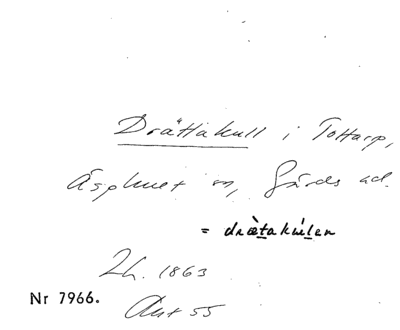 Drättakull i Tottarp,
Äsphult sn, Gärds hd.
= drætakulen
Lh. 1863
Nr 7966.
Akt 55